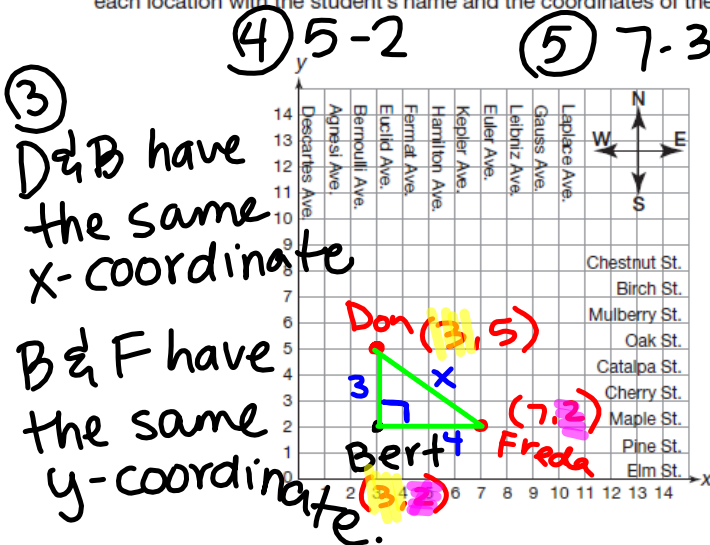 each location with the student's name and the coordinates of the
④ 5-2
⑤ 7-3
③
D & B have
the same
x-coordinate
B & F have
the same
y-coordinate.
y
14
13
12
11
10
9
8
7
6
5
4
3
2
1
0
Descartes Ave.
Agnesi Ave.
Bernoulli Ave.
Euclid Ave.
Fermat Ave.
Hamilton Ave.
Kepler Ave.
Euler Ave.
Leibniz Ave.
Gauss Ave.
Laplace Ave.
N
W E
S
Chestnut St.
Birch St.
Mulberry St.
Oak St.
Catalpa St.
Cherry St.
Maple St.
Pine St.
Elm St.
Don (3, 5)
3
x
4
(7,2)
Freda
Bert
(3,2)
2 3 4 6 7 8 9 10 11 12 13 14
x